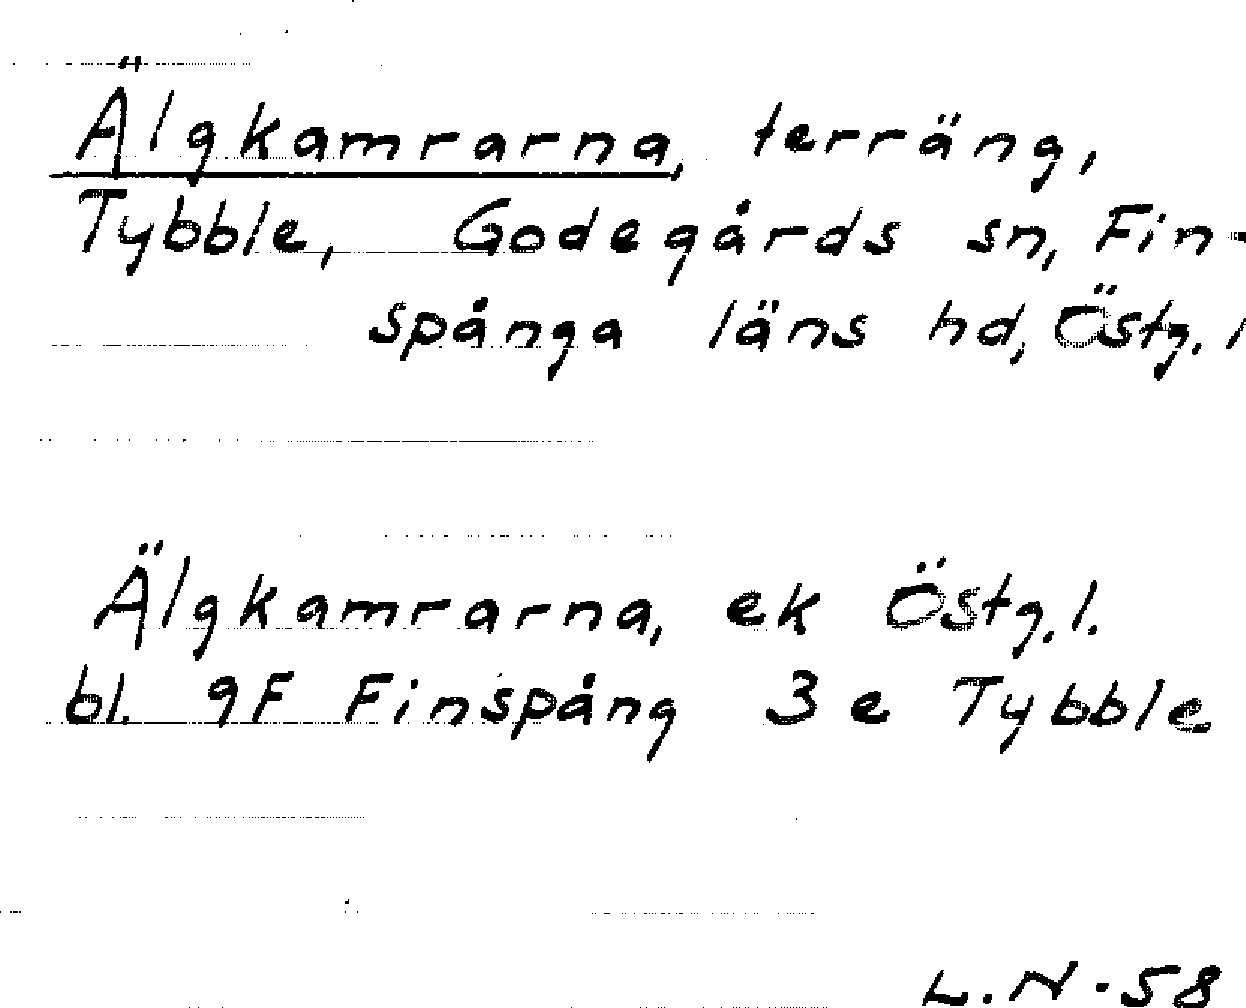 Älgkamrarna, terräng,
Tybble, Godegårds sn, Fin-
spånga läns hd, Östg. l
Älgkamrarna, ek Östg.l.
bl. 9F Finspång 3e Tybble
L.N.-58